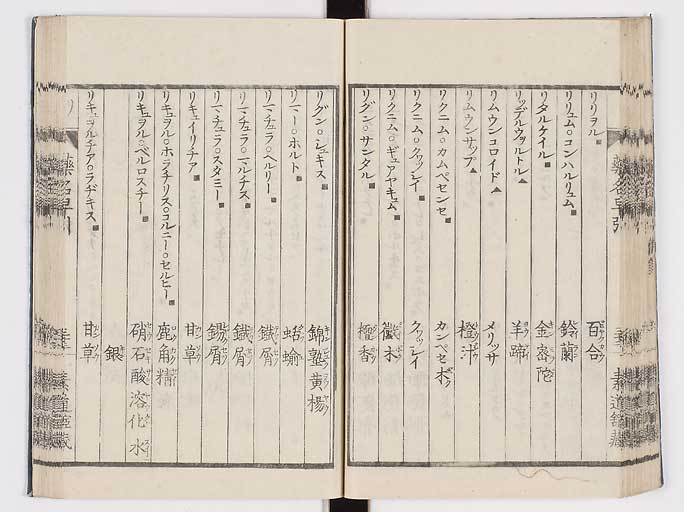 リリヲル 百合
リリュム○コンハルリュム 鈴蘭
リタルケイル 金密陀
リッデルウヲルトル 羊蹄
リムウンコロイド メリッサ
リムウンサップ 橙汁
リクニム○カムペセンセ カンペセ木
リクニム○クヮッレイ クヮッレイ
リクニム○ギュアヤキュム 癒木
リグン○サンタル 檀香
リグン○シュキス 錦塾黄楊
リマー○ホルト 蛞蝓
リマチュラ○ヘルリー 鐵屑
リマチュラ○マルチス 鐵屑
リマチュラ○スタニー 錫屑
リキュイリチア 甘草
リキュヲル○ホラチリス○コルニー○セルヒー 鹿角精
リキュヲル○ベルロスチー 硝石酸溶化水
銀
リキュヲルチア○ラヂキス 甘草